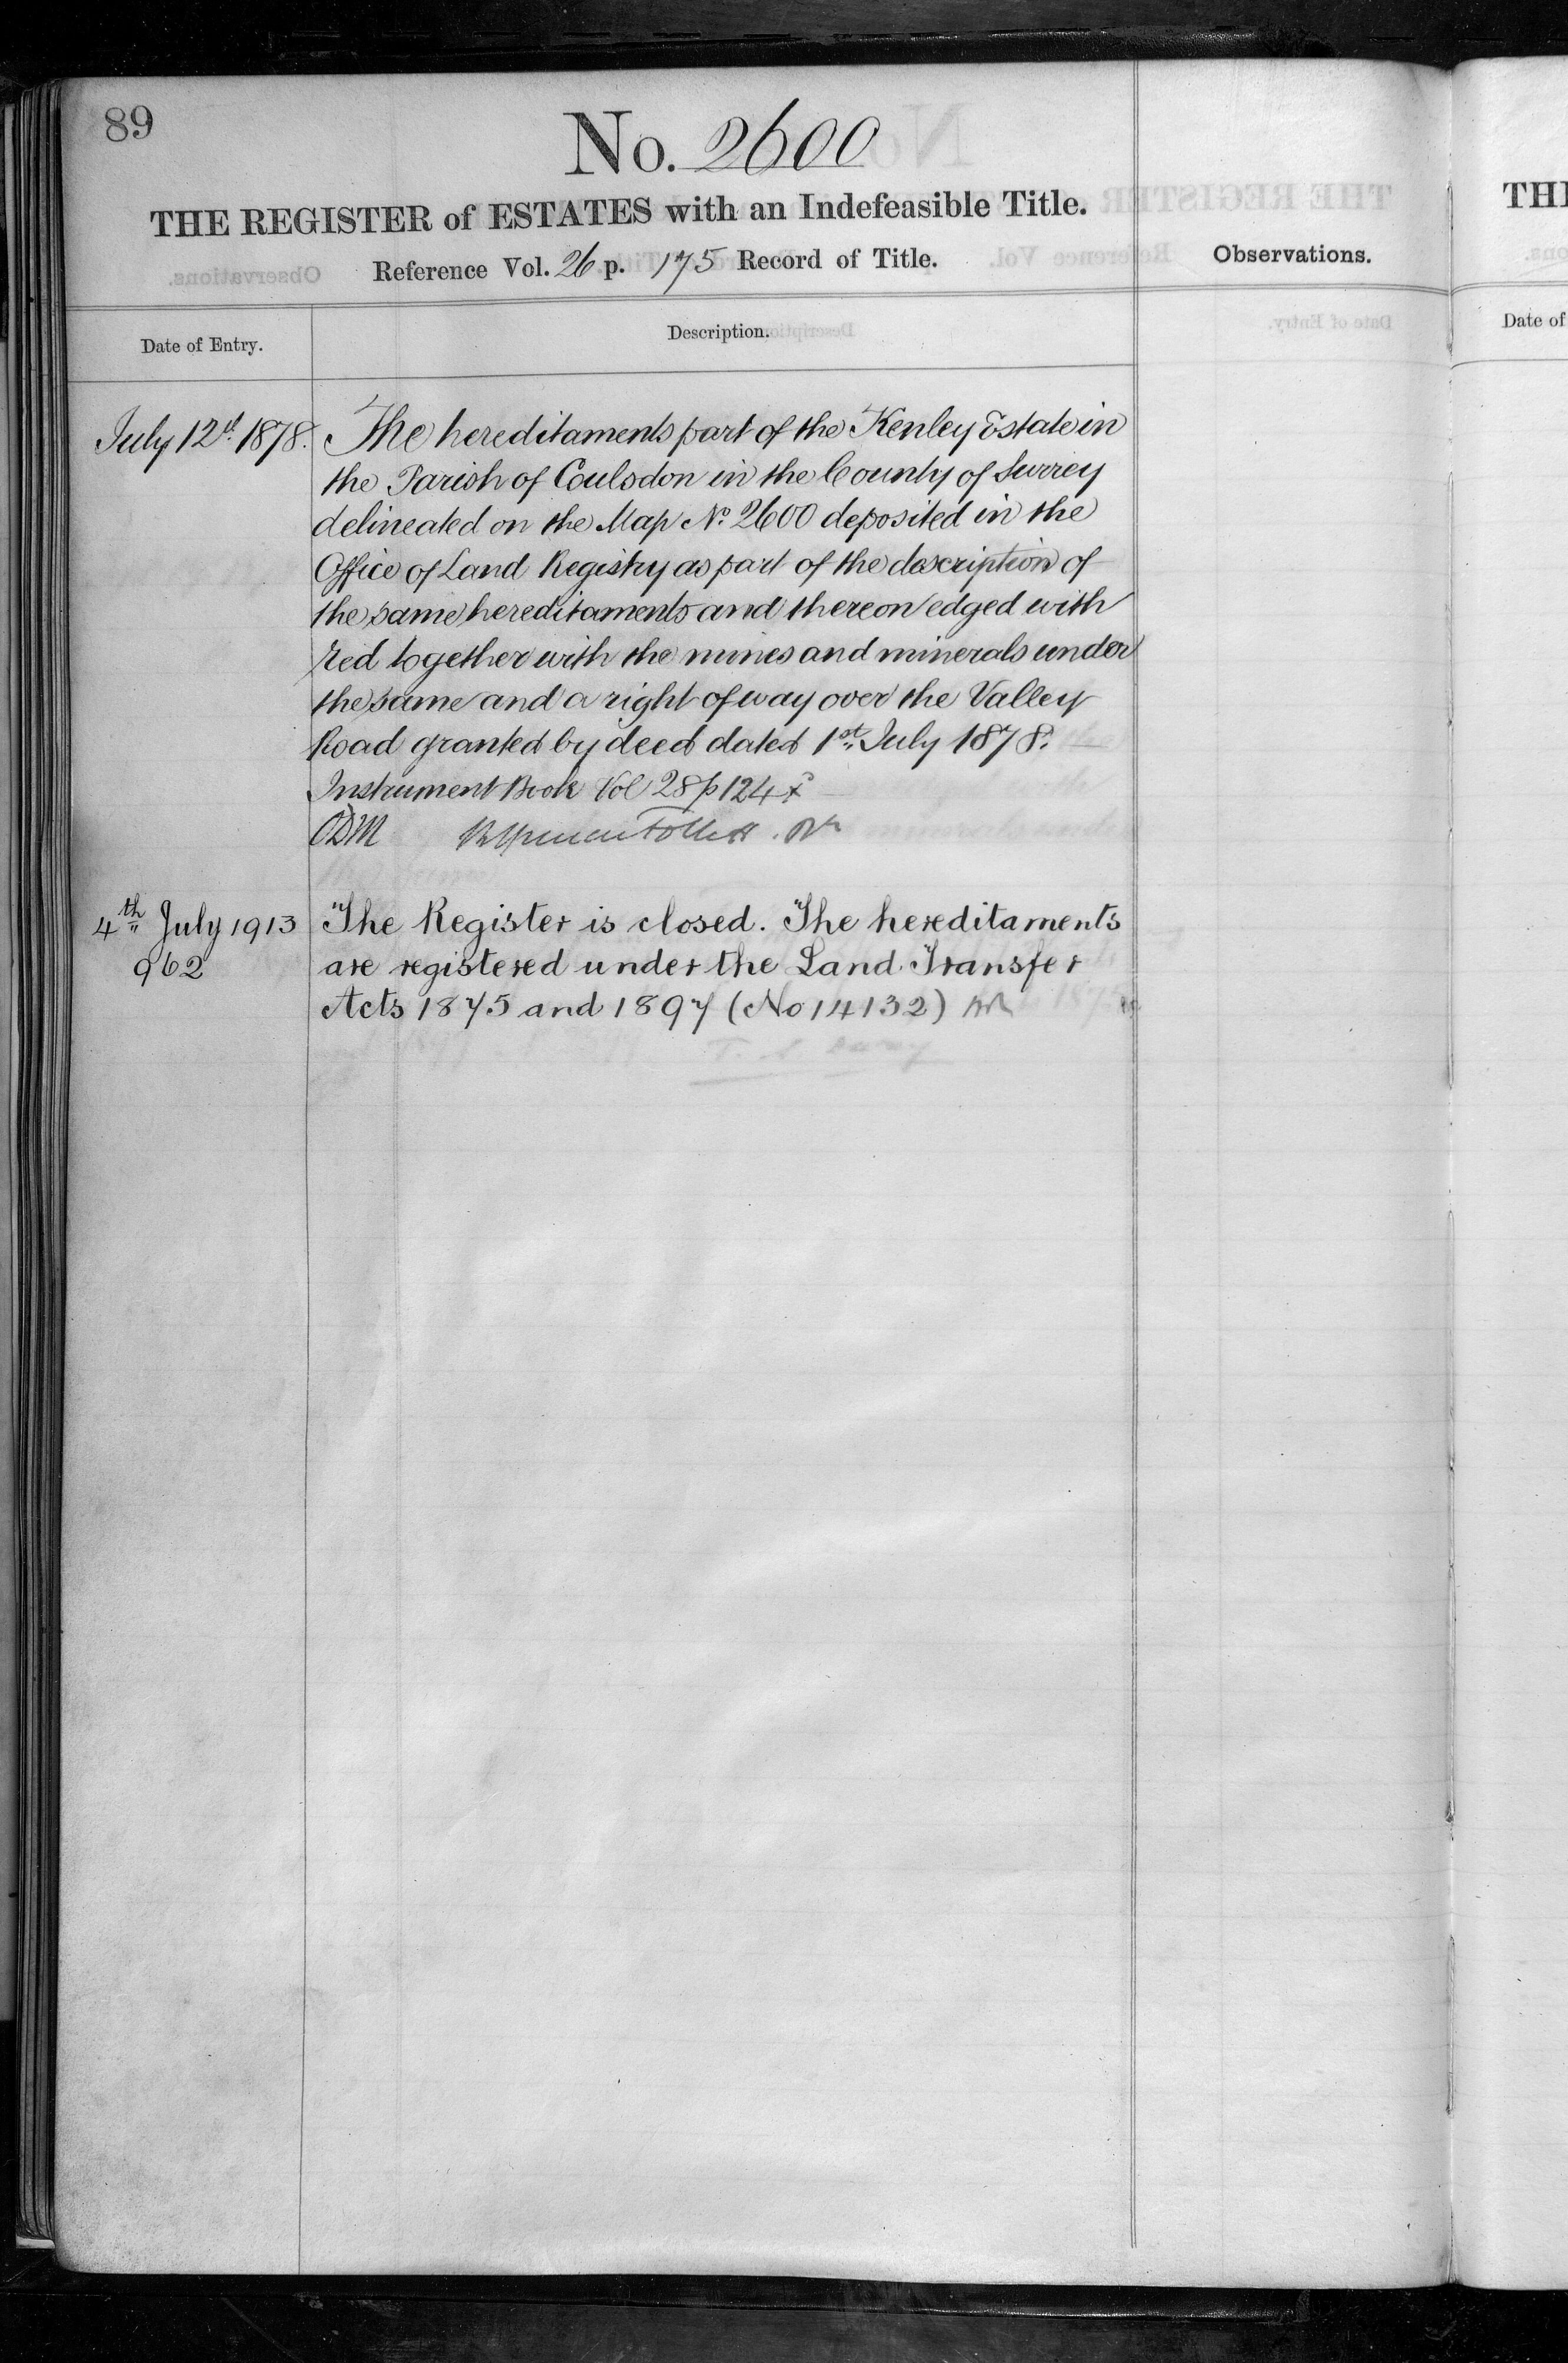 89
No. 2600
THE REGISTER of ESTATES with an Indefeasible Title.
Reference Vol. 26 p. 175 Record of Title.
Observations.
Date of Entry.
Description.
July 12th 1878.
The hereditaments part of the Kenley Estate in
the Parish of Coulsdon in the County of Surrey
delineated on the Map No. 2600 deposited in the
Office of Land Registry as part of the description of
the same hereditaments and thereon edged with
red together with the mines and minerals under
the same and a right of way over the Valley
Road granted by deed dated 1st July 1878.
Instrument Book Vol 28 p 124
4th July 1913
962
The Register is closed. The hereditaments
are registered under the Land Transfer
Acts 1875 and 1897 (No 14132)
Date of